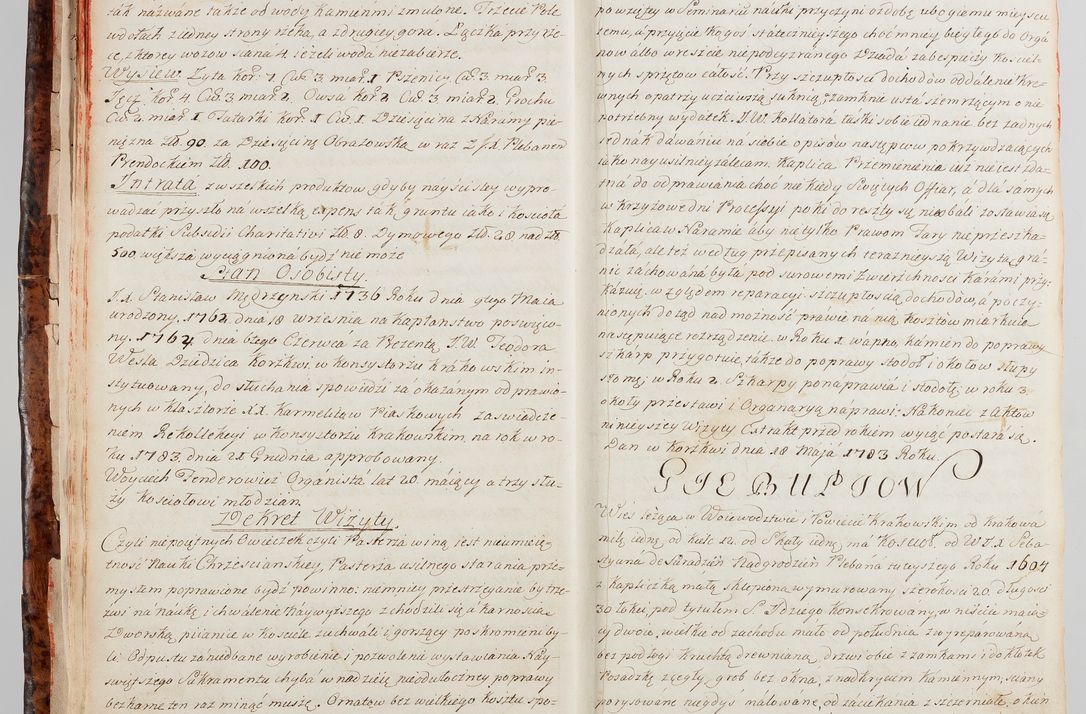 tak nazwane także od wody kamieńmi zmulone. Trzecie Pole
wdołach z iedney strony rzeka, a zdrugiey gora. Łączka przy rze-
ce, zktorey wozow siana 4. ieżeli woda niezabierze.
Wysiew. Zyta kor: 1 Cw: 3 miar. 1 Pszenicy Cw. 3 miar 3
Jęcz. kor 4 Cw. 3 miar 2. Owsa kor 2 Cw. 3 miar 2. Grochu
Cw. 2. miar 1 Tatarki kor. 1 Cw. 1. Dziesięcina z Naramy pie-
niężna zł. 90. za Dziesięcinę Obrazowską w raz z J.X. Plebanem
Prendockiem zł. 100.
Intrata z wszelkich produktow gdyby nayściśley wypro-
wadzać przyszło na wszelką expens tak gruntu iako i kościoła
podatki Subsidii Charitativi zł. 8. Dymowego zł. 28 nad zł.
500. większa wyciągniona bydź nie może
Stan Osobisty.
J.X. Stanisław Mędrzynski 1736 Roku dnia 9tego Maia
urodzony. 1762. dnia 18 Wrzesnia na kapłanstwo poswięco-
ny. 1764 dnia 6go Czerwca za Prezentą J.W. Teodora
Wesla Dziedzica Korzkwi w konsystorzu krakowskim in-
stytuowany, do słuchania spowiedzi za okazanym odprawio-
nych w klasztorze XX. Karmelitow w Piaskowych zaswiadcze-
niem Rekollekcyi w konsystorzu krakowskim, na rok w ro-
ku 1783. dnia 21 Grudnia approbowany.
Woyciech Fenderowicz Organista lat 20. maiący a trzy słu-
ży kościołowi młodzian
Dekret Wizyty.
Czyli niepoiętnych Owieczek czyli Pasterza winą iest nieumieię-
tność Nauki Chrzescianskiey, Pasterza usilnego starania prze-
mysłem poprawione bydź powinno: niemniey przestrzeganie by trze-
zwi na naukę i chwalenie Naywyższego z chodzili się a karnoscią
Dworską piianie w kosciele zuchwali i gorszący poskromieni by-
li. Odpustu zaniedbane wyrobienie i pozwolenie wystawiania Nay-
swiętszego Sakramentu chyba w nadzieię nieodwłoczney poprawy
bezkarne ten raz minąć muszę. Ornatow bez wielkiego kosztu spo-
po wziętey w Seminariu nauki przyczyni ozdobę ubogiemu mieyscu
temu, a przyięcie kogoś statecznieyszego choć mniey biegłego do Orga-
now albo wreszcie niepodeyzranego Dziada zabespieczy koscieł-
nych sprzętow całość. Przy szczupłości dochodow oddalenie kre-
wnych opatrzy uczciwszą suknią, zamknie usta szemrzącym o nie
potrzebny wydatek. J.W. Kollatora łaski sobie iednanie bez żadnych
iednak dawaniu na siebie opisow następcow pokrzywdzaiących
iako nayusilniey zalecam. Kaplica Przemienienia iuż nie iest zda-
tna do odprawiania choć nie kiedy Swiętych Offiar, a dla samych
w krzyżowe dni Processyi poki do reszty się nieobali zostawia się
Kaplica w Naramie aby nie tylko Prawom Fary nieprzeszka-
dzała, ale też według przepisanych teraznieyszą Wizytą gra-
nic zachowana była pod surowemi Zwierzchności karami przy-
kazuię. względem reparacyi szczupłością dochodow, a poczy-
nionych dotąd nad możność prawie na nią kosztow miarkuię
następuiące rozrządzenie. w Roku 1 wapno, kamień do poprawy
szkarp przygotuie, także do poprawy stodoł i okołow słupy
słomę, w Roku 2. Szkarpy ponaprawia i stodołę, w roku 3.
okoły przestawi i Organaryą naprawi: Nakoniec z Aktow
ninieyszey Wizyty Extrakt przed rokiem wyiąć postara się.
Dan w Korzkwi dnia 18 Maja 1783 Roku.
GIEBUŁTOW
Wieś leżąca w Woiewodztwie i Powiecie Krakowskim od Krakowa
milę iednę, od kielc 12. od Skały iednę, ma Kosciół, od W.J.X Seba-
styana de Sandzin Nadgrodzien Plebana tuteyszego Roku 1604
z kapliczką małą sklepioną wymurowany szerokości 20. długości
30 łokci, pod tytułem S. Idziego konsekrowany, w niściu maią-
cy dwoie, wielkie od zachodu małe od południa zwyreparowaną
bez podłogi kruchtą drewnianą, drzwi obie z zamkami i do kłotek
Posadzkę z cegły grob bez okna, z nadkryciem kamiennym, sciany
porysowane niegdys malowane, od zaciekania z szczerniałe, okien